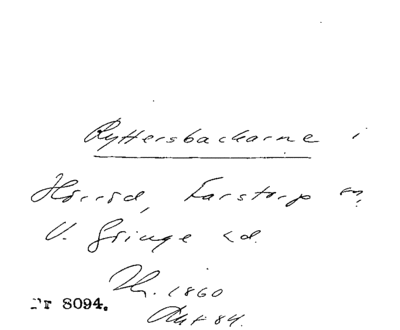 Ryttersbackarne i
Hörröd, Farstorp sn,
V. Göinge hd.
Th. 1860
Nr 8094.